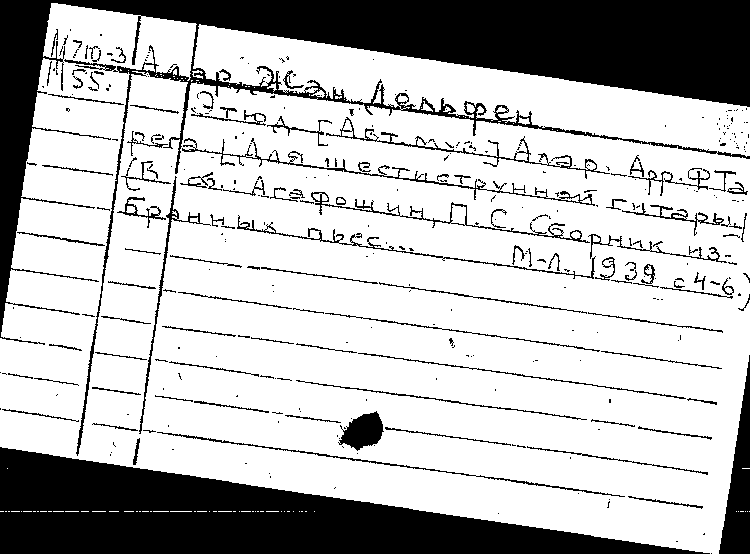 М710-3
55.
Алар, Жан Дельфен
Этюд. [Авт. муз.] Алар. Арр. Ф Та
рега. [Для шестиструнной гитары]
(В сб.: Агафошин, П. С. Сборник из-
бранных пьес... М-Л., 1939 с 4-6.)